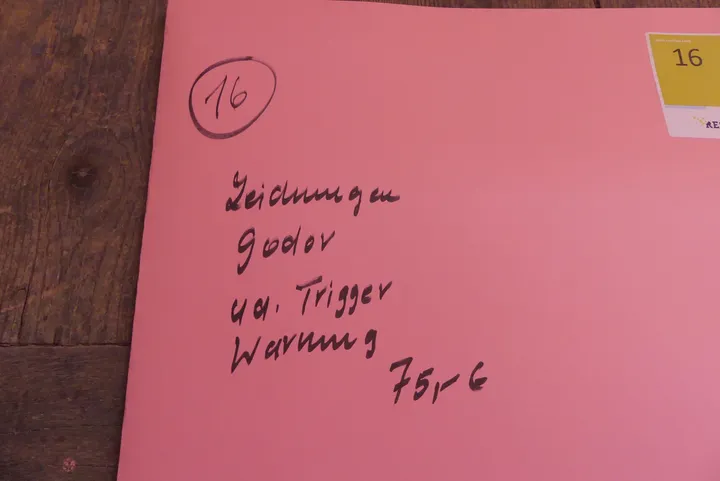 16
16
Zeichnungen
Godov
ua. Trigger
Warnung
75,- €